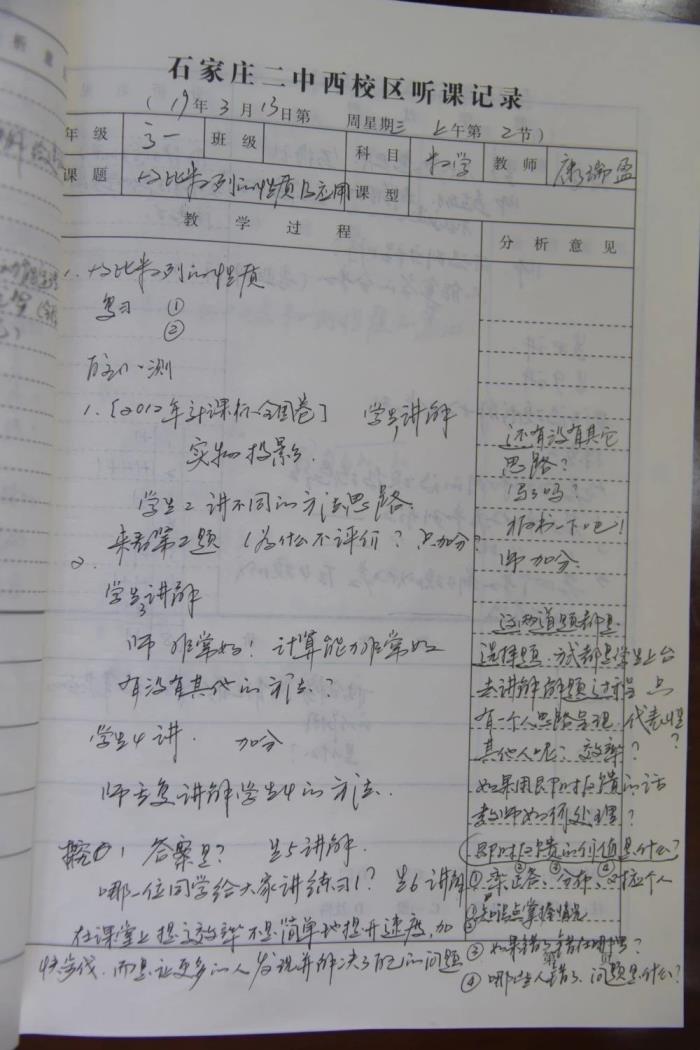 石家庄二中西校区听课记录
(19年3月13日第 周星期三 上午第2节)
年级 高一 班级 科目 数学 教师
课题 等比数列的性质及应用 课型
教学过程 分析意见
1. 等比数列的性质
复习 ①
②
测
1. [2012年新课标全国卷] 学生1讲解
实物投影.
学生2讲不同的方法思路.
2. 来看第2题 (为什么不评价? 只加分?
学生3讲解
师 非常好! 计算能力非常好
有没有其他的方法?
学生4讲. 加分
师重复讲解学生4的方法.
1 答案是? 生5讲解.
哪一位同学给大家讲练习1? 生6讲解
在课堂上提高效率不是简单地提升速度,加
快步伐.而是让更多的人发现并解决了自己的问题
还有没有其它
思路?
写了吗?
板书一下吧!
师 加分.
这两道题都是
选择题.方式都是学生上台
去讲解解题过程 只
有一个人思路呈现,代表
其他人呢? 效率?
如果用即时反馈的话
教师如何处理?
即时反馈的价值是什么?
① 个人
②知识点掌握情况
③ 如果错了错在哪里?
④ 哪些人错了.问题是什么?